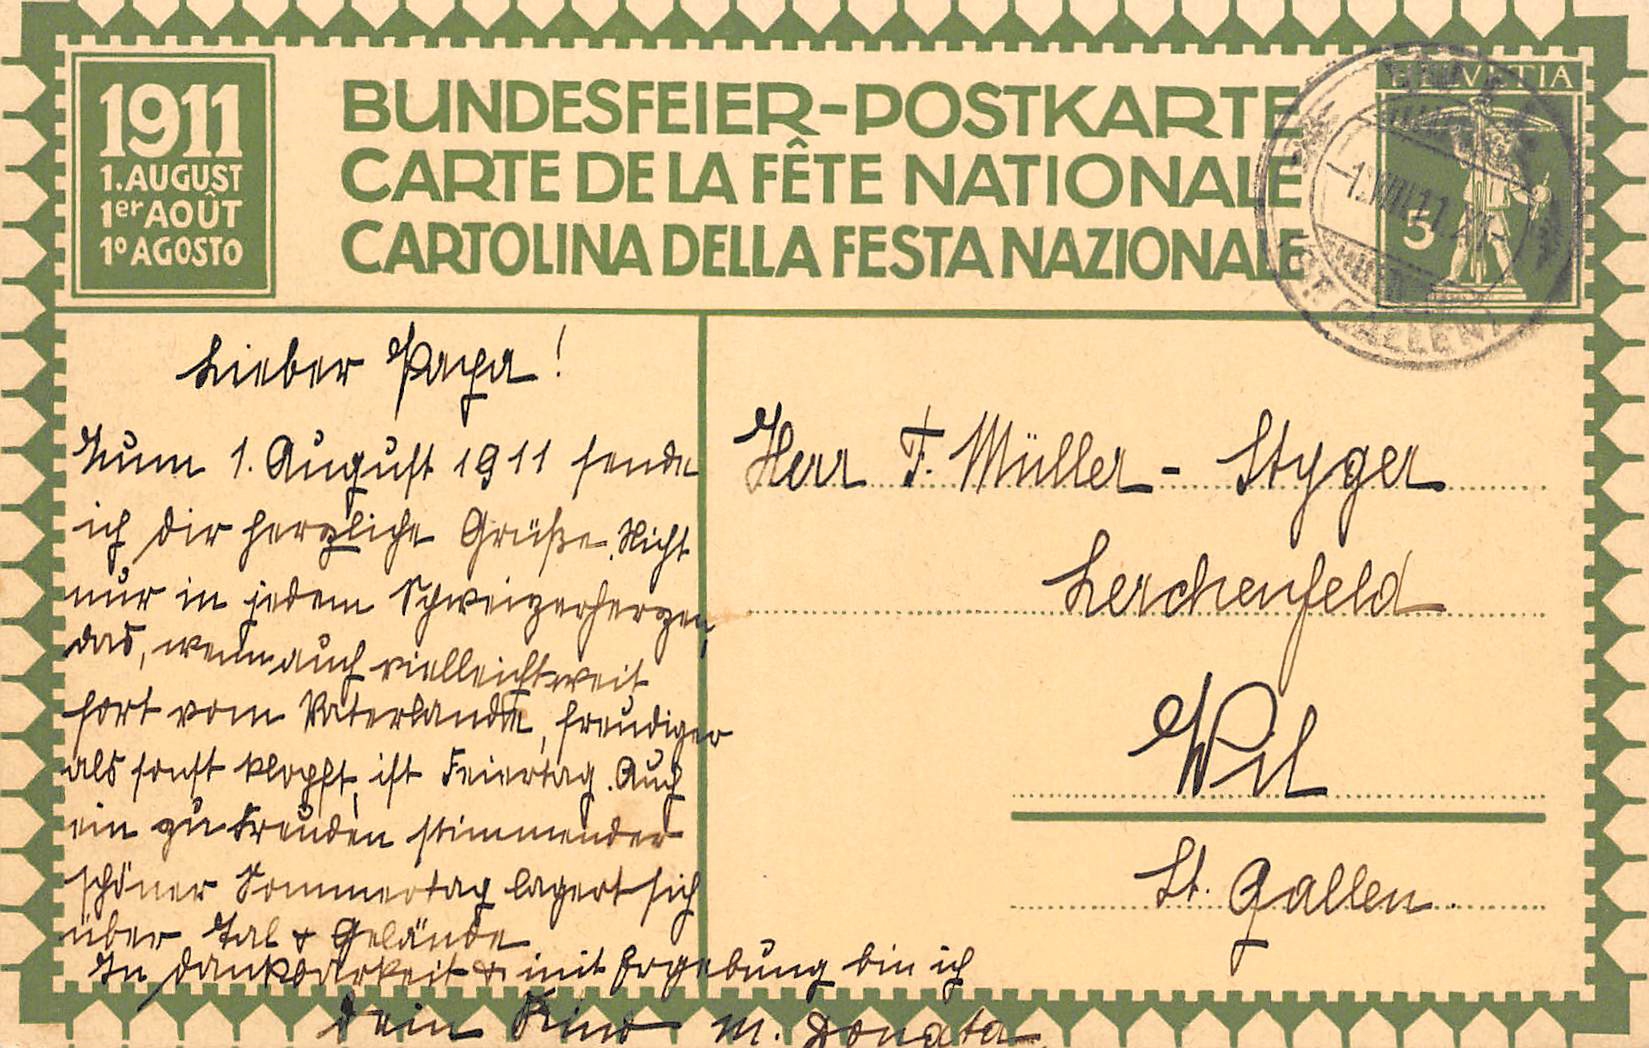 1911
1. AUGUST
1er AOÛT
1º AGOSTO
BUNDESFEIER-POSTKARTE
CARTE DE LA FÊTE NATIONALE
CARTOLINA DELLA FESTA NAZIONALE
HELVETIA
5
-1.VIII.11.
(ST. GALLEN)
Lieber Papa!
Zum 1. August 1911 sende
ich dir herzliche Grüße. Nicht
nur in jedem Schweizerherzen,
das, wenn auch vielleicht weit
fort vom Vaterlande, freudiger
als sonst klopft, ist Feiertag. Auch
ein zu Freuden stimmender
schöner Sommertag lagert sich
über Tal & Gelände
In Dankbarkeit & mit Ergebung bin ich
dein Kind M. Donata.
Herr F. Müller-Styger
Lerchenfeld
Wil
St. Gallen.